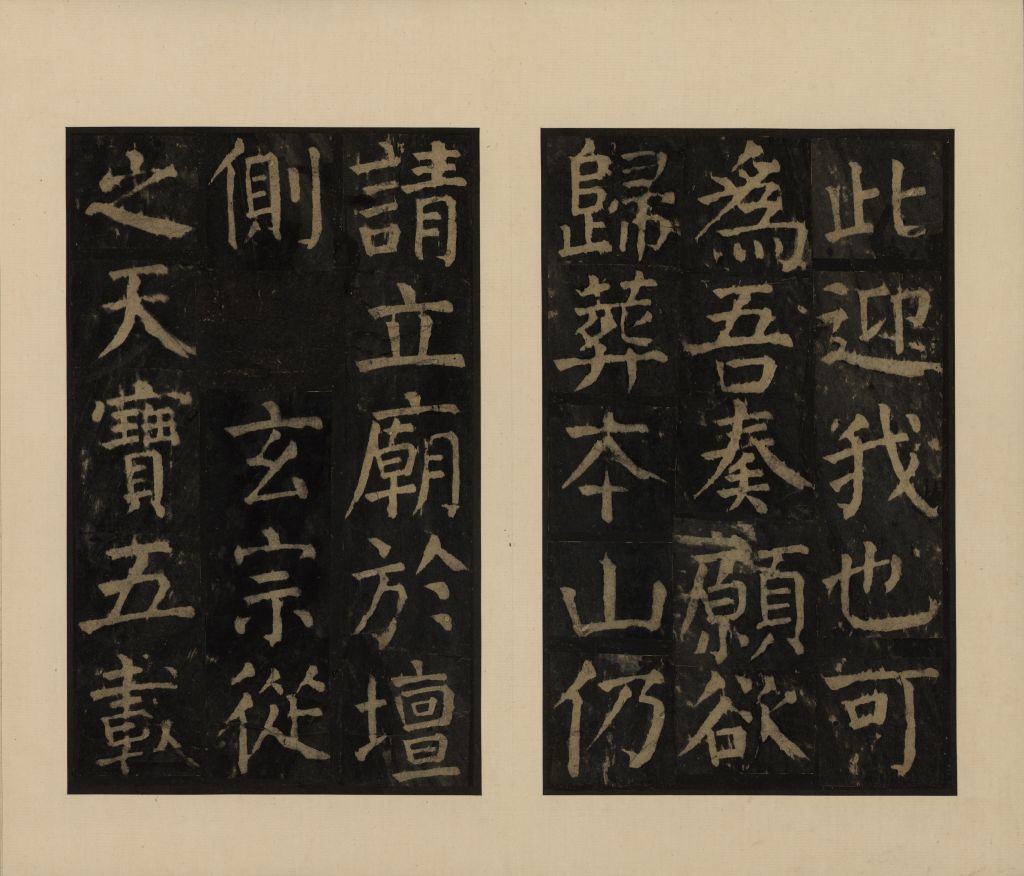 此迎我也可
為吾奏願欲
歸葬本山仍
請立廟於壇
側 玄宗從
之天寶五載